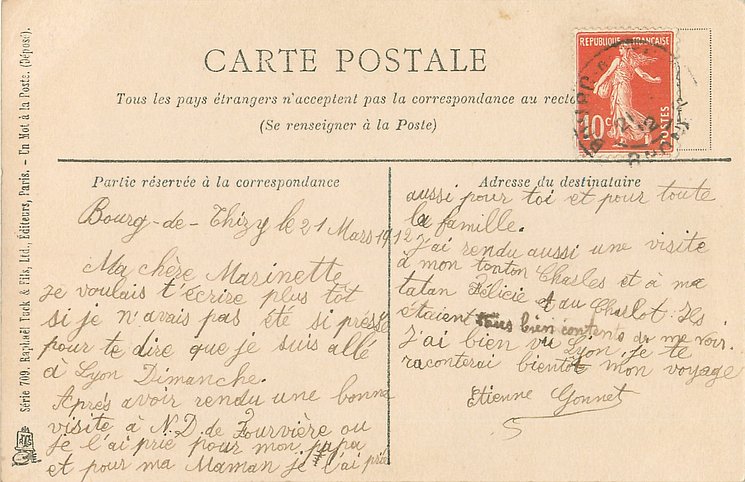 CARTE POSTALE
Tous les pays étrangers n'acceptent pas la correspondance au recto
(Se renseigner à la Poste)
REPUBLIQUE FRANÇAISE
10c
POSTES
Série 709. Raphaël Tuck & Fils, Ltd., Éditeurs, Paris. - Un Mot à la Poste. (Déposé).
Partie réservée à la correspondance
Bourg-de-Thizy le 21 Mars 1912
Ma chère Marinette
Je voulais t'écrire plus tôt
si je n'avais pas été si pressé
pour te dire que je suis allé
à Lyon Dimanche.
Après avoir rendu une bonne
visite à N.D. de Fourvière ou
je l'ai prié pour mon papa
et pour ma Maman je l'ai prié
Adresse du destinataire
aussi pour toi et pour toute
la famille.
J'ai rendu aussi une visite
à mon tonton Charles et à ma
tatan Félicie et au Charlot. Ils
étaient tous bien contents de me voir.
J'ai bien vu Lyon je te
raconterai bientôt mon voyage
Etienne Gonnet